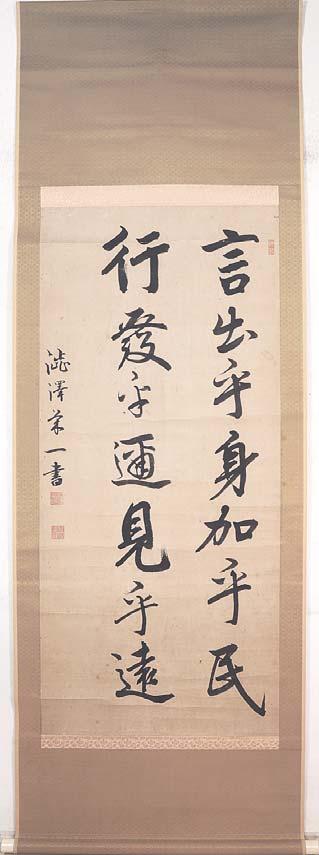 言出乎身加乎民
行發乎邇見乎遠
澁澤榮一書